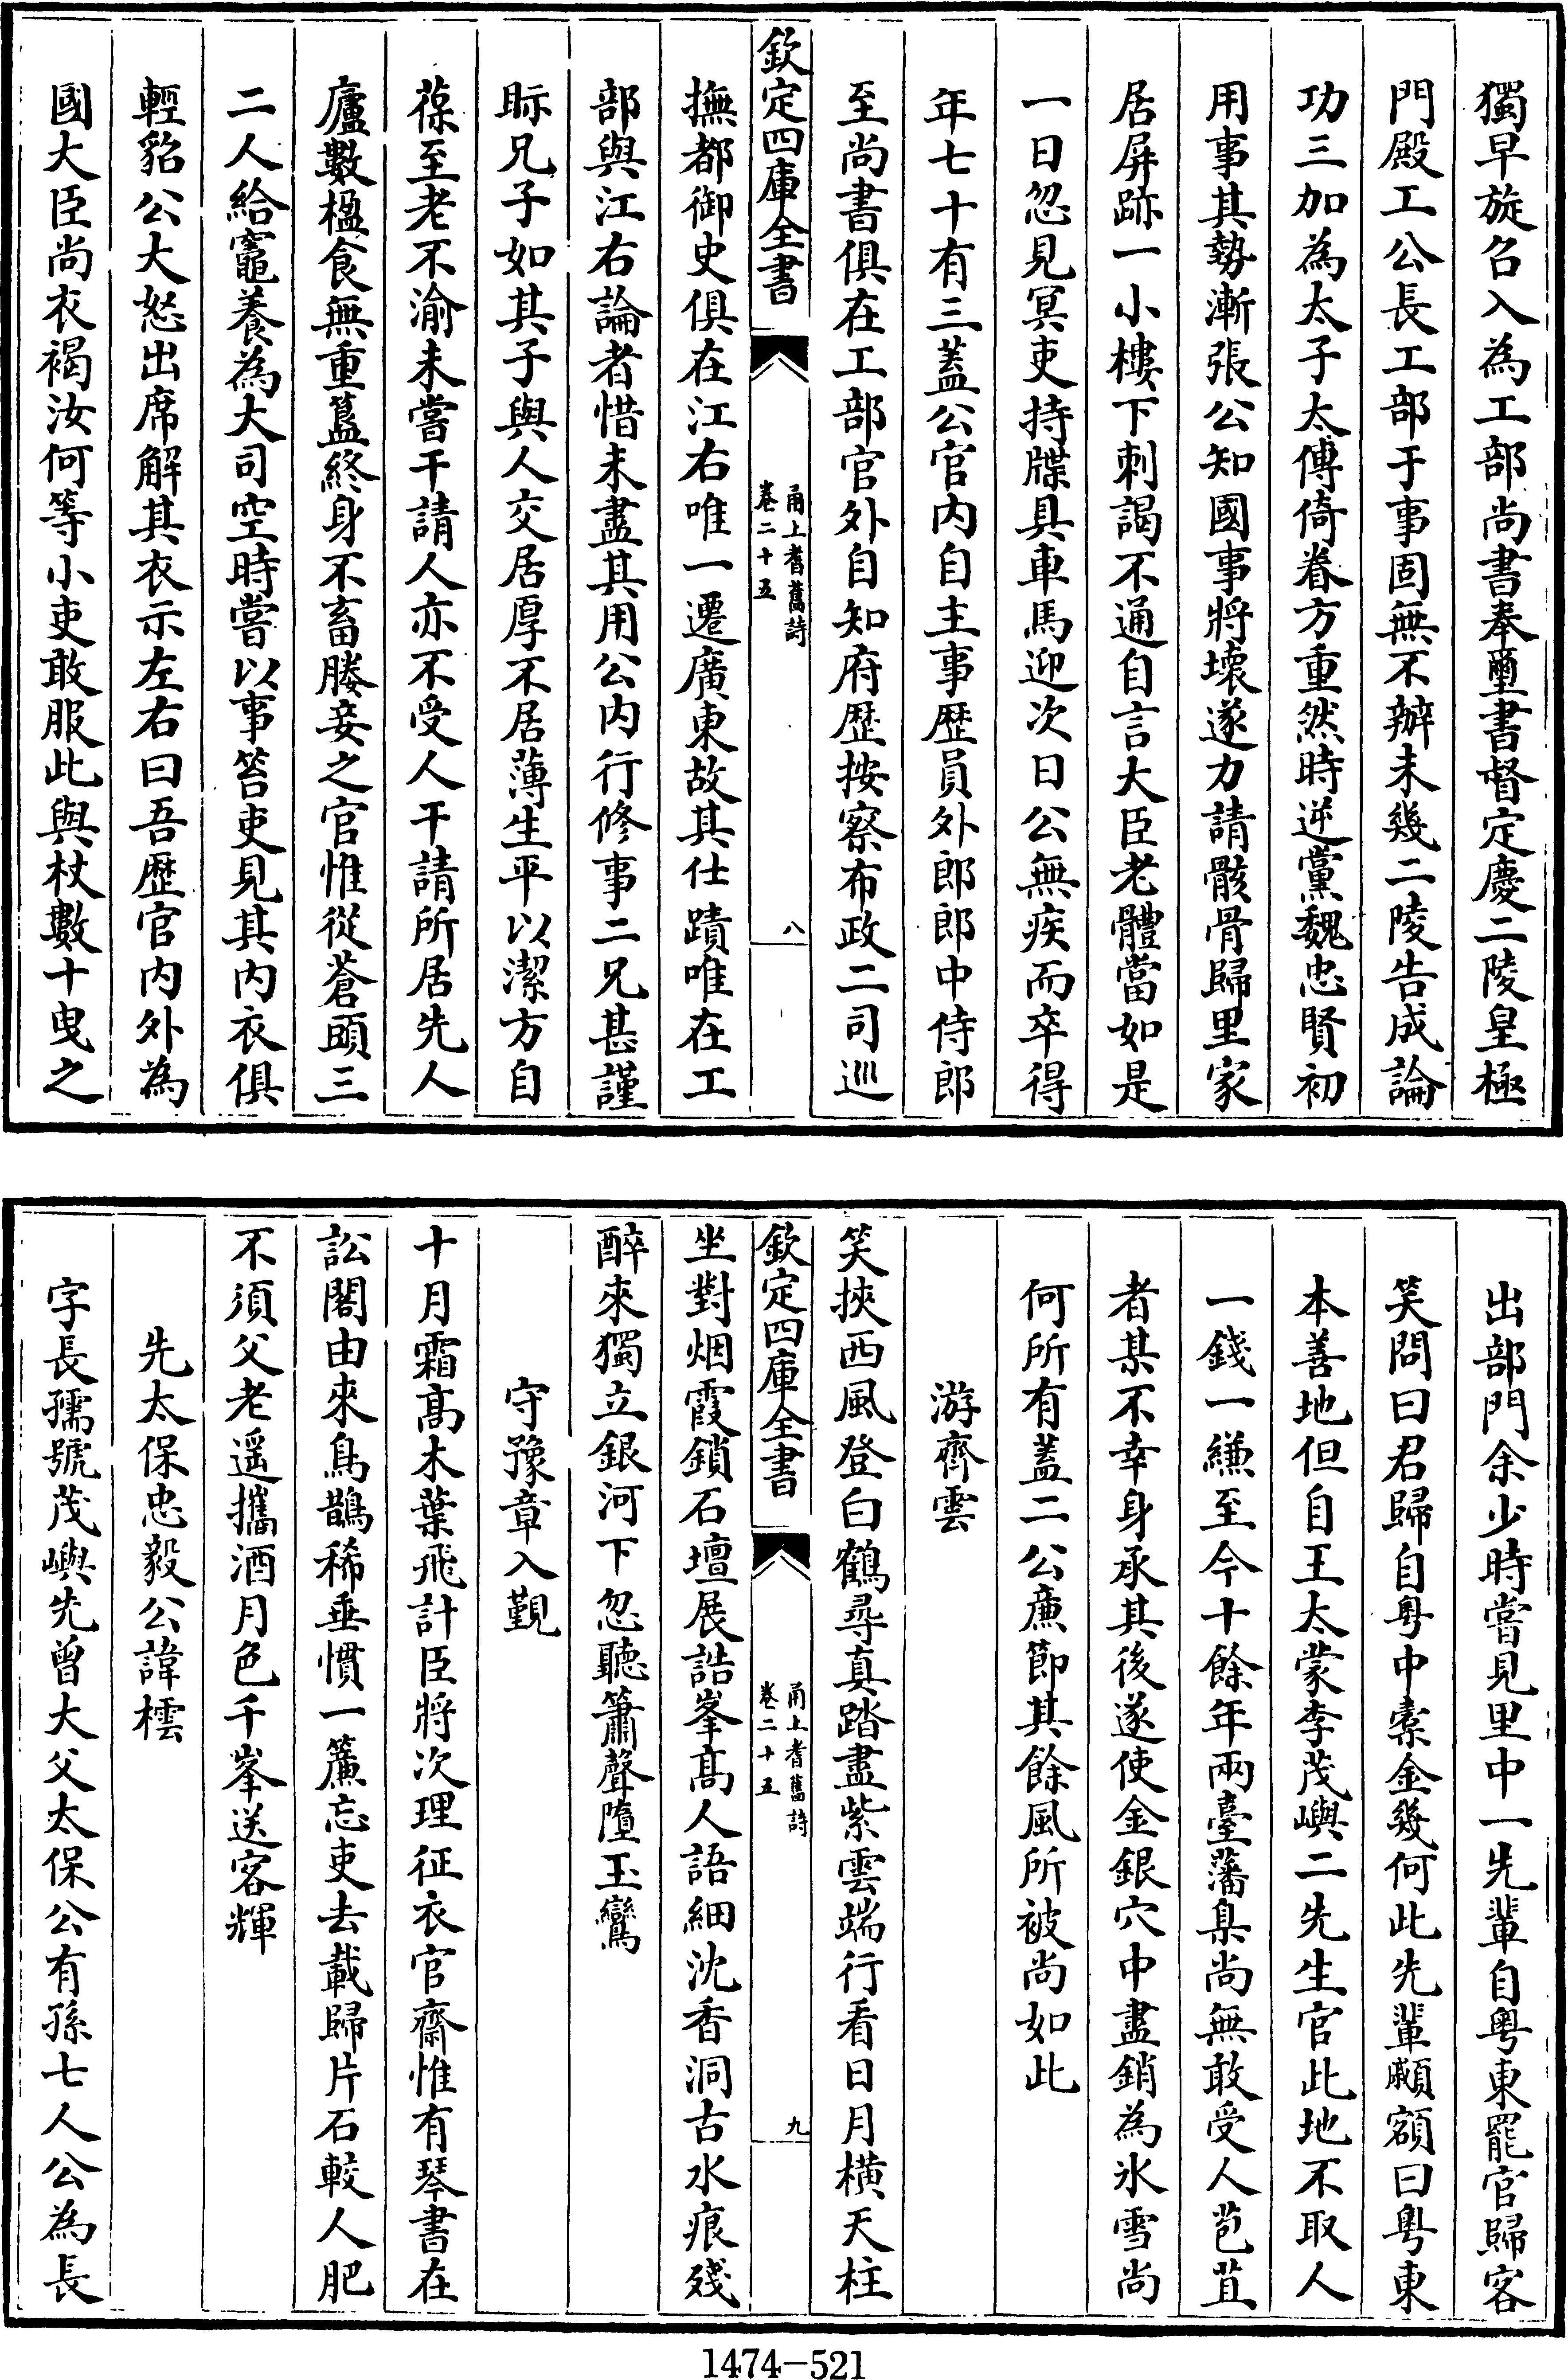 獨早旋召入為工部尚書奉璽書督定慶二陵皇極
門殿工公長工部于事固無不辦未幾二陵告成論
功三加為太子太傅倚眷方重然時逆黨魏忠賢初
用事其勢漸張公知國事將壞遂力請骸骨歸里家
居屏跡一小樓下刺謁不通自言大臣老體當如是
一日忽見冥吏持牒具車馬迎次日公無疾而卒得
年七十有三蓋公官内自主事歷員外郎郎中侍郎
至尚書俱在工部官外自知府歷按察布政二司巡
欽定四庫全書
甬上耆舊詩
卷二十五
八
撫都御史俱在江右唯一遷廣東故其仕蹟唯在工
部與江右論者惜未盡其用公内行修事二兄甚謹
眎兄子如其子與人交居厚不居薄生平以潔方自
葆至老不渝未嘗干請人亦不受人干請所居先人
廬數楹食無重簋終身不畜媵妾之官惟從蒼頭三
二人給竈養為大司空時嘗以事笞吏見其内衣俱
輕貂公大怒出席解其衣示左右曰吾歷官内外為
國大臣尚衣褐汝何等小吏敢服此與杖數十曳之
出部門余少時嘗見里中一先輩自粤東罷官歸客
笑問曰君歸自粤中橐金幾何此先輩顣額曰粤東
本善地但自王太蒙李茂嶼二先生官此地不取人
一錢一縑至今十餘年兩臺藩臬尚無敢受人苞苴
者某不幸身承其後遂使金銀穴中盡銷為氷雪尚
何所有蓋二公亷節其餘風所被尚如此
游齊雲
笑挾西風登白鶴尋真踏盡紫雲端行看日月横天柱
欽定四庫全書
甬上耆舊詩
卷二十五
九
坐對烟霞鎖石壇展誥峯髙人語細沈香洞古水痕殘
醉來獨立銀河下忽聽簫聲墮玉鸞
守豫章入覲
十月霜髙木葉飛計臣將次理征衣官齋惟有琴書在
訟閣由來鳥鵲稀垂慣一簾忘吏去載歸片石較人肥
不須父老遥攜酒月色千峯送客輝
先太保忠毅公諱橒
字長孺號茂嶼先曾大父太保公有孫七人公為長
1474-521